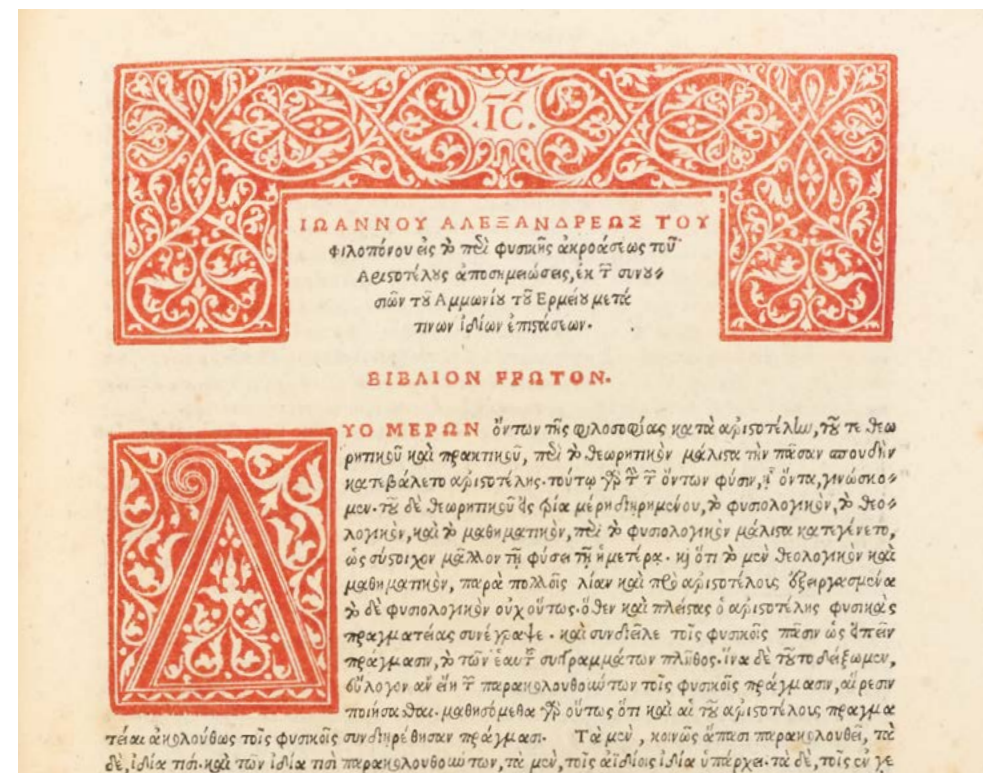 .ΙC.
ΙΩΑΝΝΟΥ ΑΛΕΞΑΝΔΡΕΩΣ ΤΟΥ
Φιλοπόνου εἰς τὸ περὶ φυσικῆς ἀκροάσεως τοῦ
Αριστοτέλους ἀποσημειώσεις, ἐκ τῶν συνου-
σιῶν τοῦ Αμμωνίου τοῦ Ερμείου μετά
τινων ἰδίων ἐπιστάσεων.
ΒΙΒΛΙΟΝ ΡΡΩΤΟΝ.
ΔΥΟ ΜΕΡΩΝ ὄντων τῆς φιλοσοφίας κατὰ ἀριστοτέλην, τοῦ τε θεω
ρητικοῦ καὶ πρακτικοῦ, περὶ τὸ θεωρητικὸν μάλιστα τὴν πᾶσαν σπουδὴν
κατεβάλετο ἀριστοτέλης. τούτῳ γὰρ τὴν τῶν ὄντων φύσιν, ὄντα, γινώσκο-
μεν. τοῦ δὲ θεωρητικοῦ εἰς τρία μέρη διῃρημένου, τὸ φυσιολογικὸν, τὸ θεο-
λογικὸν, καὶ τὸ μαθηματικὸν, περὶ τὸ φυσιολογικὸν μάλιστα κατεγένετο,
ὡς σύστοιχον μᾶλλον τῇ φύσει τῇ ἡμετέρᾳ. καὶ ὅτι τὸ μὲν θεολογικὸν καὶ
μαθηματικὸν, παρὰ πολλοῖς λίαν καὶ πρὸ ἀριστοτέλους ἐξειργασμένα
τὸ δὲ φυσιολογικὸν οὐχ οὕτως. ὅθεν καὶ πλείστας ὁ ἀριστοτέλης φυσικὰς
πραγματείας συνέγραψε. καὶ συνδιεῖλε τοῖς φυσικοῖς πᾶσιν ὡς εἰπεῖν
πράγμασιν, τὸ τῶν ἑαυτοῦ συγγραμμάτων πλῆθος. ἵνα δὲ τοῦτο δείξωμεν,
εὔλογον ἂν εἴη τῶν παρακολουθούντων τοῖς φυσικοῖς πράγμασιν, αἵρεσιν
ποιήσασθαι. μαθησόμεθα γὰρ οὕτως ὅτι καὶ αἱ τοῦ ἀριστοτέλους πραγμα
τεῖαι ἀκολούθως τοῖς φυσικοῖς συνδιῃρέθησαν πράγμασι. Τὰ μὲν, κοινῶς ἅπασι παρακολουθεῖ, τὰ
δὲ, ἰδίᾳ τισί. καὶ τῶν ἰδίᾳ τισὶ παρακολουθούντων, τὰ μὲν, τοῖς αἰδίοις ἰδίᾳ ὑπάρχει. τὰ δὲ, τοῖς ἐν γε